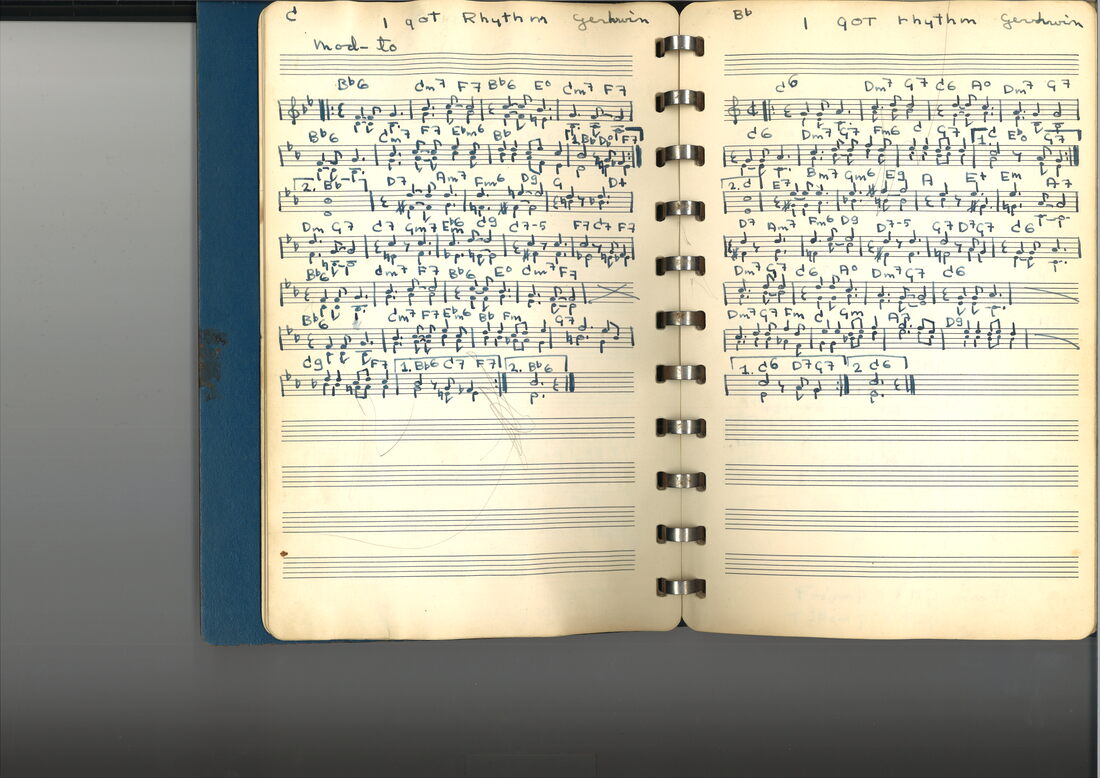 C I got Rhythm Gershwin
Mod- to
Bb6 Cm7 F7 Bb6 E° Cm7 F7
Bb6 Cm7 F7 Ebm6 Bb 1. Bb Db° F7
2. Bb D7 Am7 Fm6 D9 G D+
Dm G7 C7 Gm7 Ebm6 C9 C7-5 F7 C7 F7
Bb6 Cm7 F7 Bb6 E° Cm7 F7
Bb6 Cm7 F7 Ebm6 Bb Fm G7
C9 F7 1. Bb6 C7 F7 2. Bb6
Bb I got rhythm Gershwin
C6 Dm7 G7 C6 A° Dm7 G7
C6 Dm7 G7 Fm6 C G7 1. C Eb° G7
2. C E7 Bm7 Gm6 E9 A E+ Em A7
D7 Am7 Fm6 D9 D7-5 G7 D7 G7 C6
Dm7 G7 C6 A° Dm7 G7 C6
Dm7 G7 Fm C Gm A7 D9
1. C6 D7 G7 2 C6